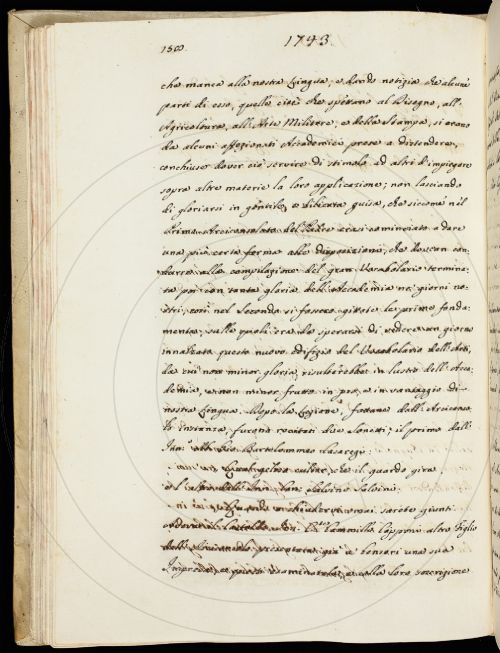 1500. 1743.
che manca alla nostra Lingua; e dando notizia che alcune
parti di esso, quelle cioè che spettano al Disegno, all'
Agricoltura, all'Arte Militare, e della Stampa, si erano
da alcuni affezionati Accademici prese a distendere,
conchiuse dover ciò servire di stimolo ad altri d'impiegare
sopra altre materie la loro applicazione; non lasciando
di gloriarsi in gentile, e che siccome nel
Primo Arciconsolato del erasi cominciato a dare
una più certa forma alle disposizioni, che dovean con-
durre alla compilazione del gran Vocabolario termina-
to poi con tanta gloria dell'Accademia ne' giorni no-
stri; così nel Secondo si fossero gittate le prime fonda-
menta, sulle quali era da sperarsi di vedere un giorno
innalzato questo nuovo edifizio del Vocabolario dell'Arti,
da cui non minor gloria risulterebbe in lustro dell'Acca-
demia, e non minor frutto in pro, e in vantaggio di
nostra Lingua. Dopo la Lezione, fattane dall'Arcicons.
istanza, furono recitati due Sonetti; il primo dall'
Bartolommeo Casaregi
che il guardo gira,
e l'altro Salvino Salvini
omai giunti
Cammillo Capponi altro Figlio
dell' già a Censori una sua
Impresa, e e colla loro